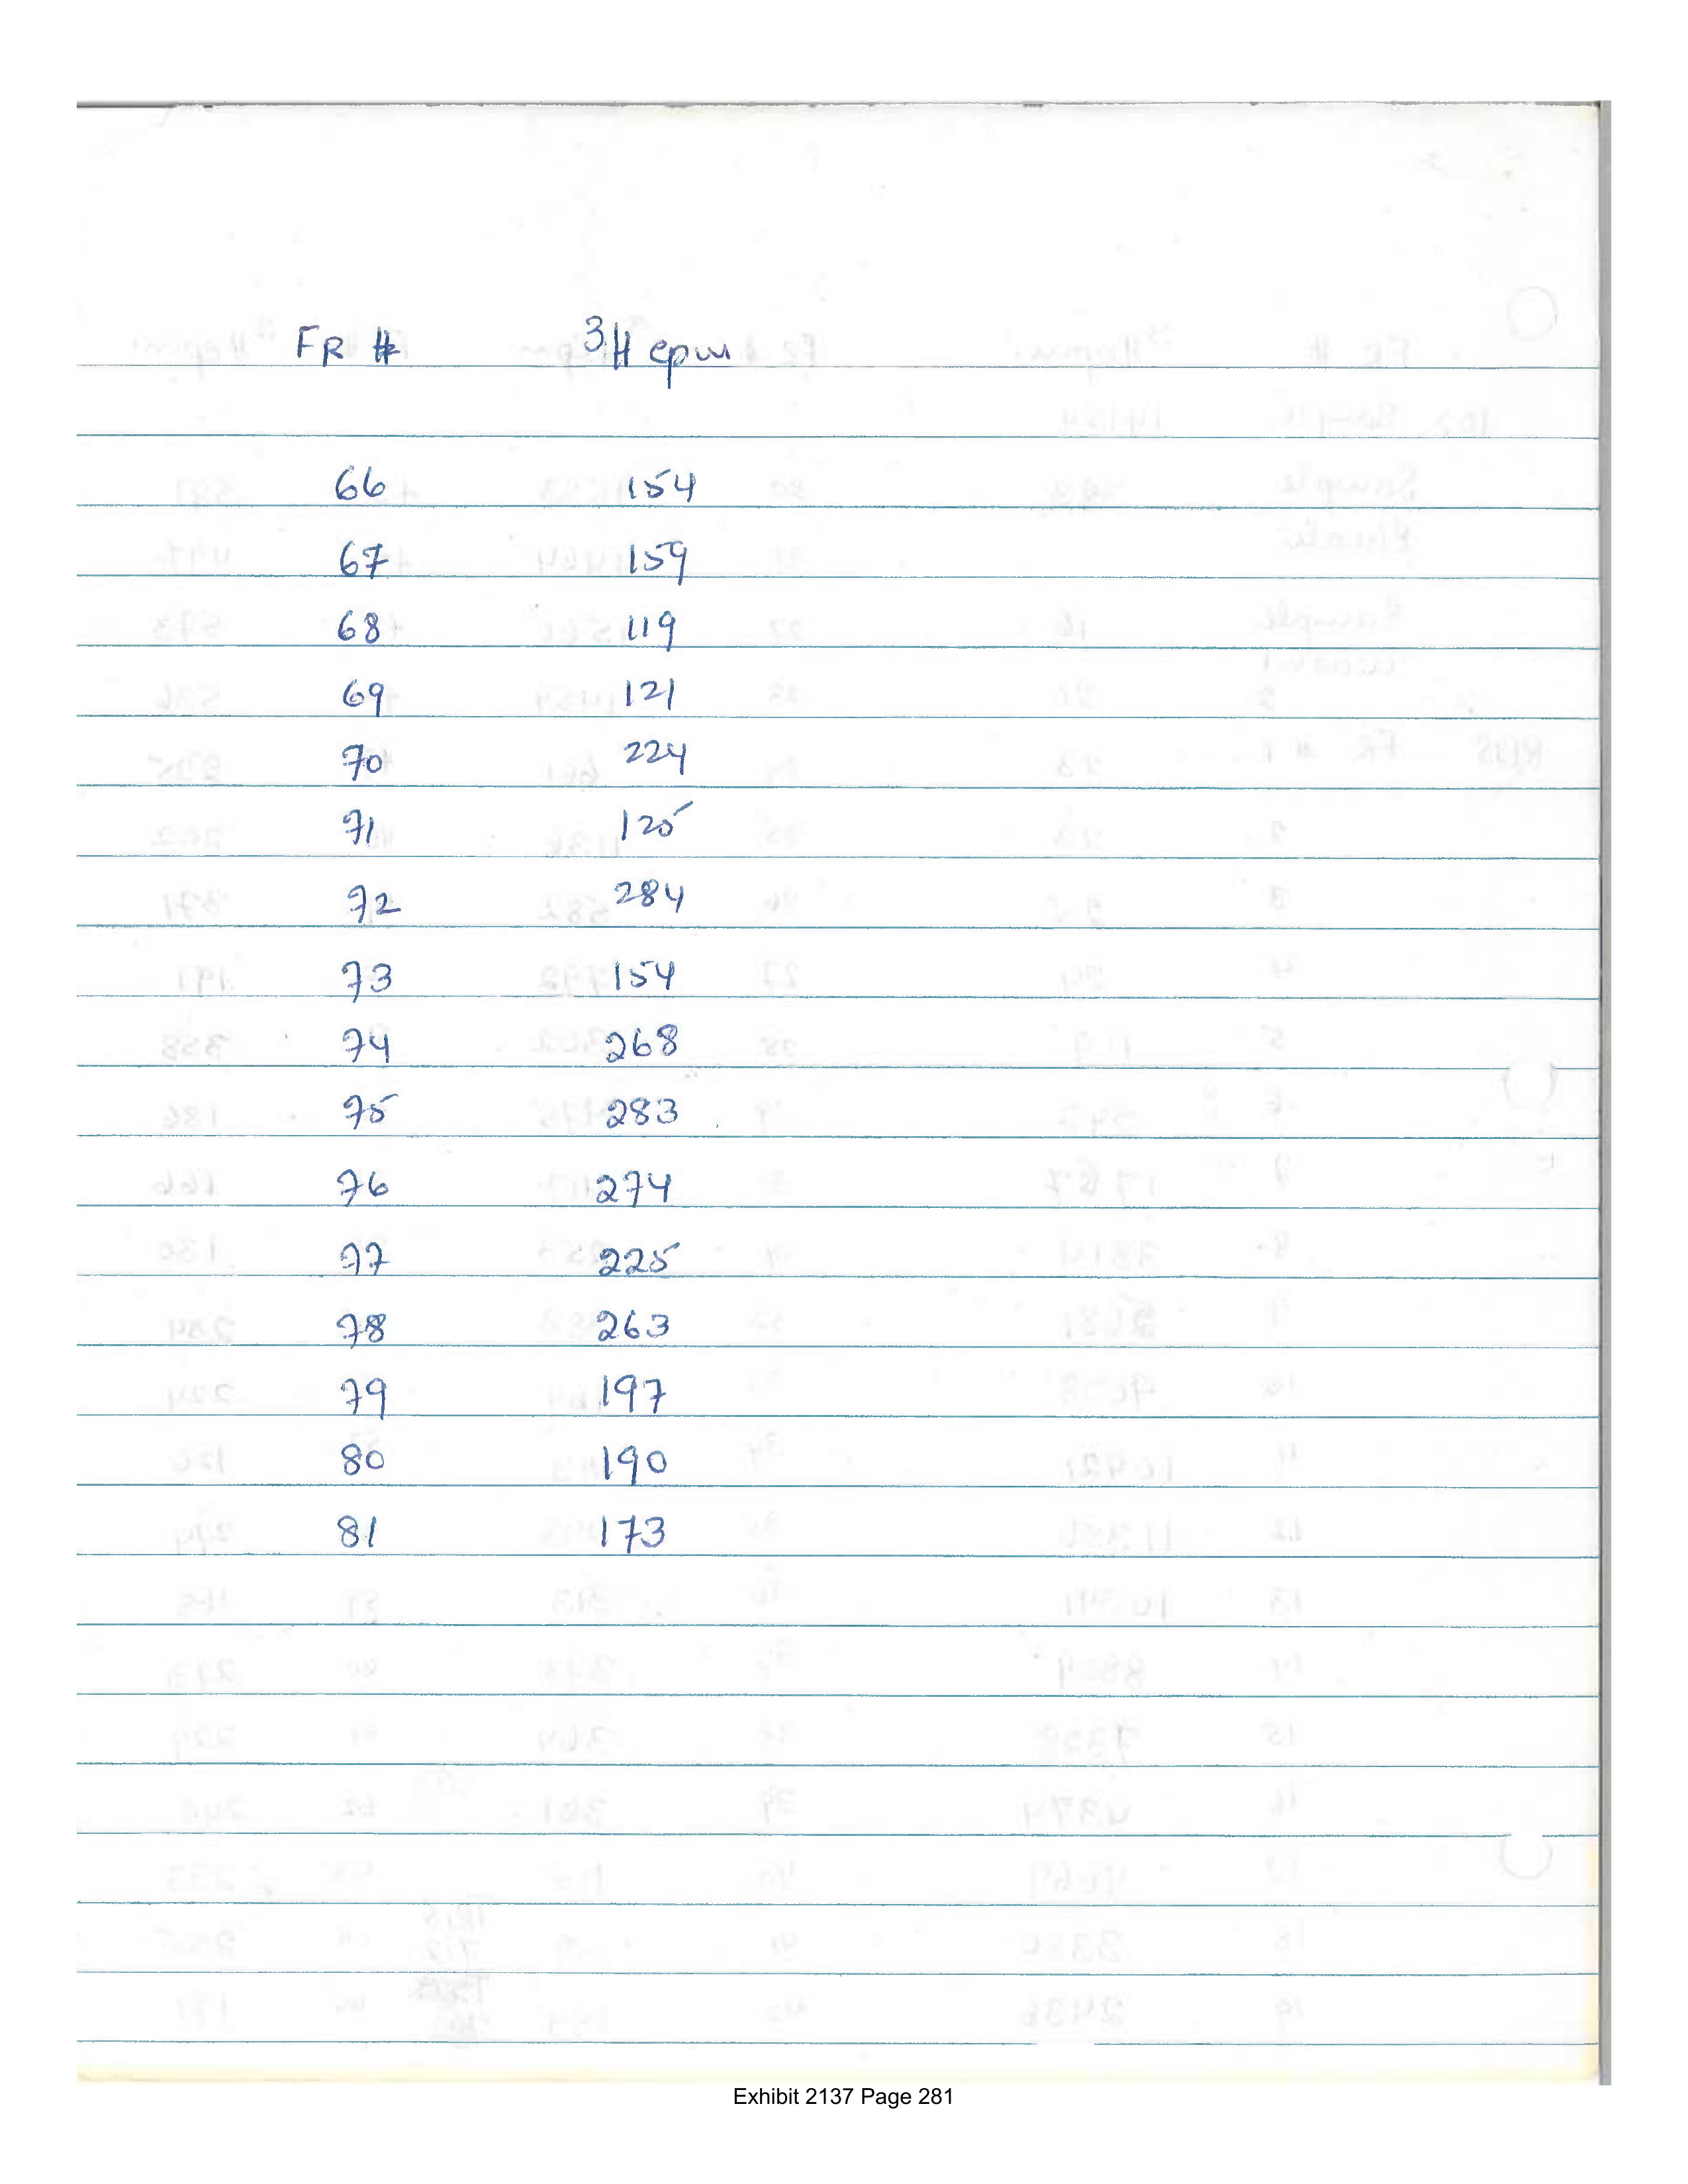 FR # ³H cpm
66 154
67 159
68 119
69 121
70 224
71 125
72 284
73 154
74 268
75 283
76 274
77 225
78 263
79 197
80 190
81 173
Exhibit 2137 Page 281